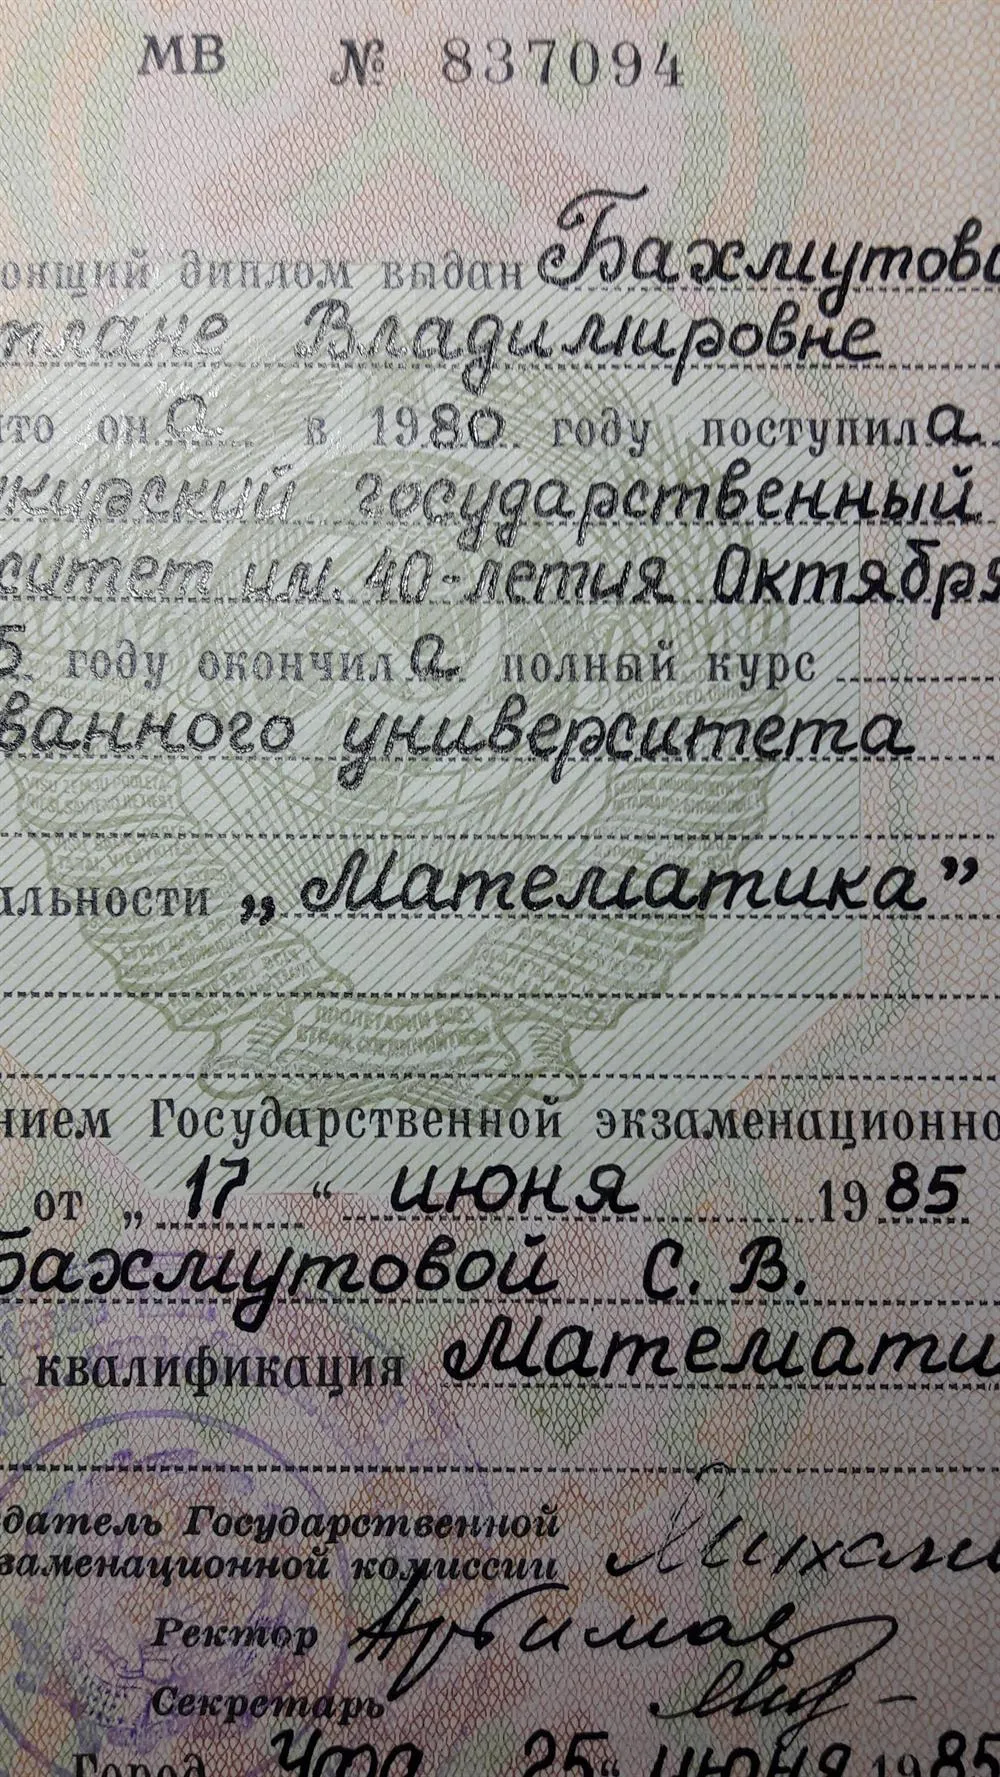 МВ № 837094
оящий диплом выдан Бахмутово
тлане Владимировне
что он а в 1980 году поступила
кирский государственный
ситет им. 40-летия Октября
5 году окончила полный курс
ванного университета
альности „Математика”
ПРОЛЕТАРИИ ВСЕХ
СТРАН, СОЕДИНЯЙТЕСЬ
нием Государственной экзаменационно
от „ 17 “ июня 1985
Бахмутовой С. В.
квалификация Математи
датель Государственной
заменационной комиссии
Ректор
Секретарь
Город Уфа 25 “ июня 1985